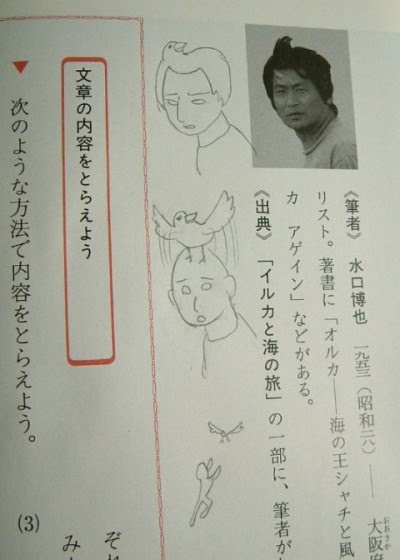 《筆者》 水口博也 一九五三(昭和二八)—— 大阪府
リスト。著書に「オルカ——海の王シャチと風
カ アゲイン」などがある。
《出典》「イルカと海の旅」の一部に、筆者が
文章の内容をとらえよう
▼ 次のような方法で内容をとらえよう。
(3)
ぞれ
み